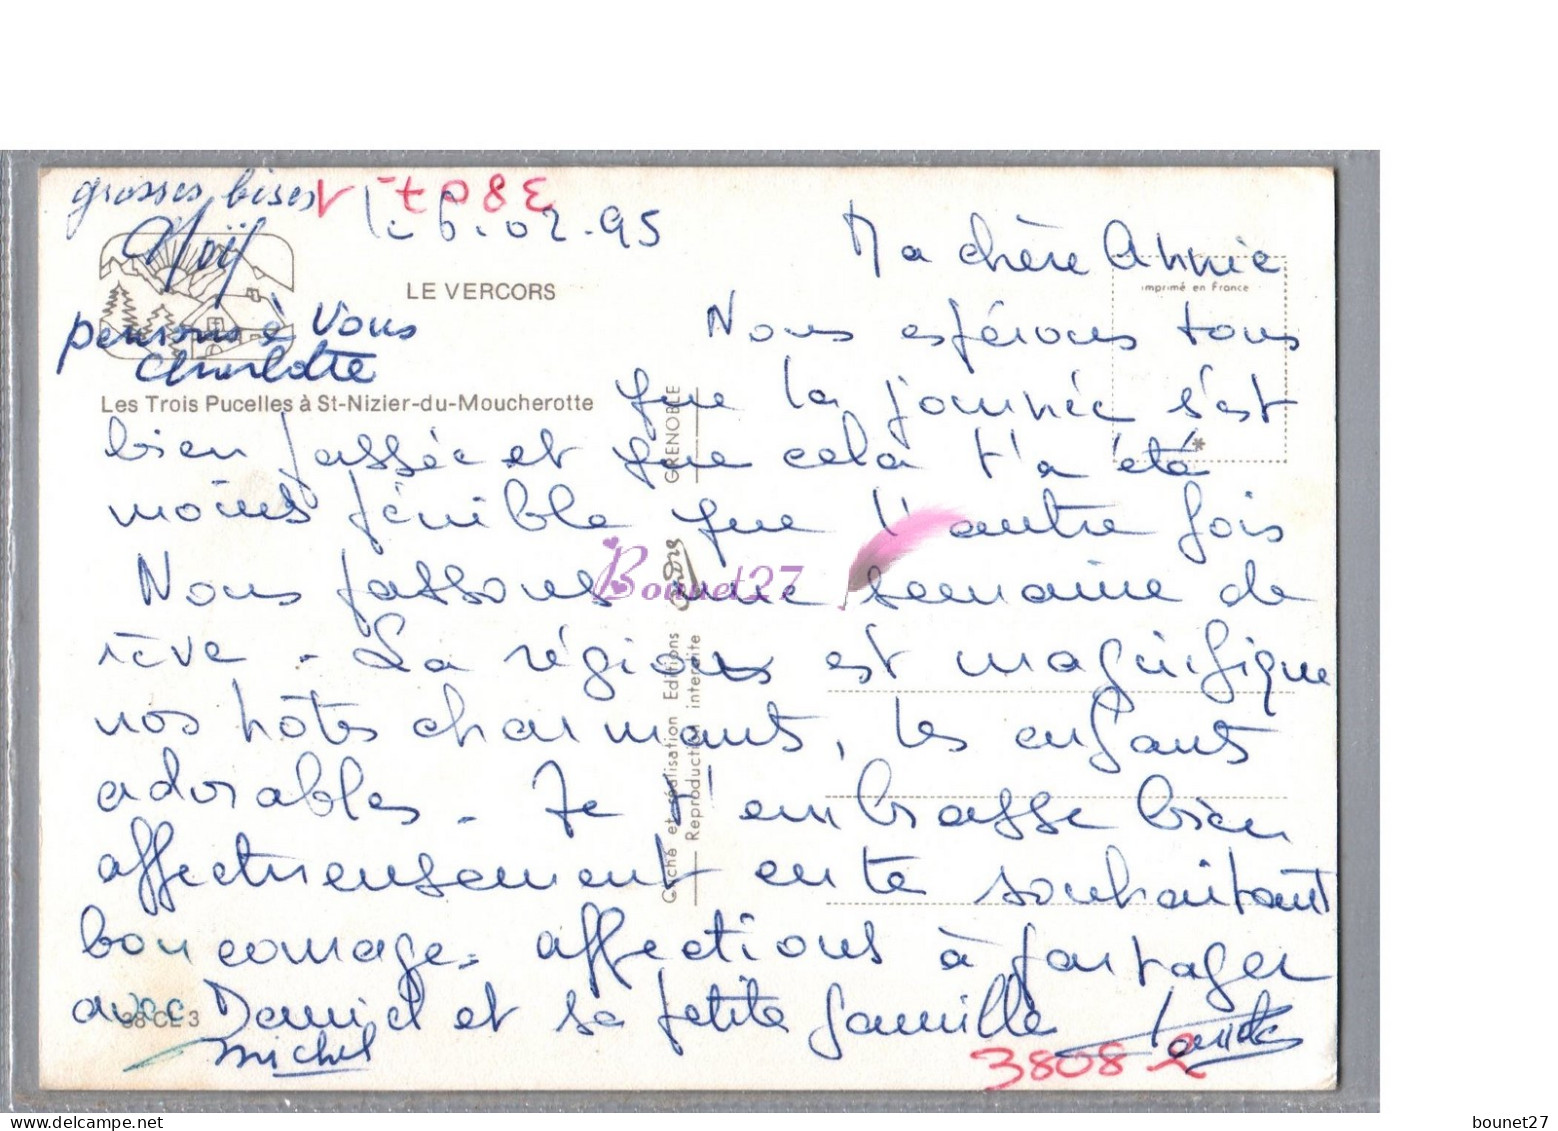 grosses bises
Noïl
3807-1
Le 6.02.95
Ma chère Annie
imprimé en France
LE VERCORS
pensons à vous
Charlotte
Les Trois Pucelles à St-Nizier-du-Moucherotte
Nous espérons tous
que la journée s'est
bien passée et que cela t'a été
moins pénible que l'autre fois
Nous passons une semaine de
rêve - La région est magnifique
nos hôtes charmants, les enfants
adorables - Je t'embrasse bien
affectueusement en te souhaitant
bon courage. affections à partager
avec Daniel et sa petite famille
michel
38 CE 3
3808 2
Cliché et réalisation Editions André GRENOBLE
Reproduction interdite
*
Bounet27
bounet27